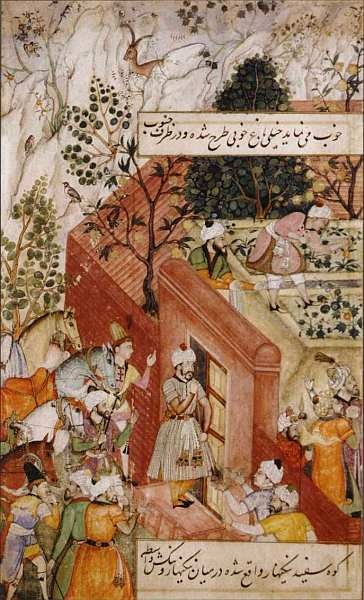 خوب می نماید خیلی باغ خوبی طرح شده و در طرف جنوب
کوه سفید نیکنهار واقع شده در میان نیکنهار و بنکش واسطه